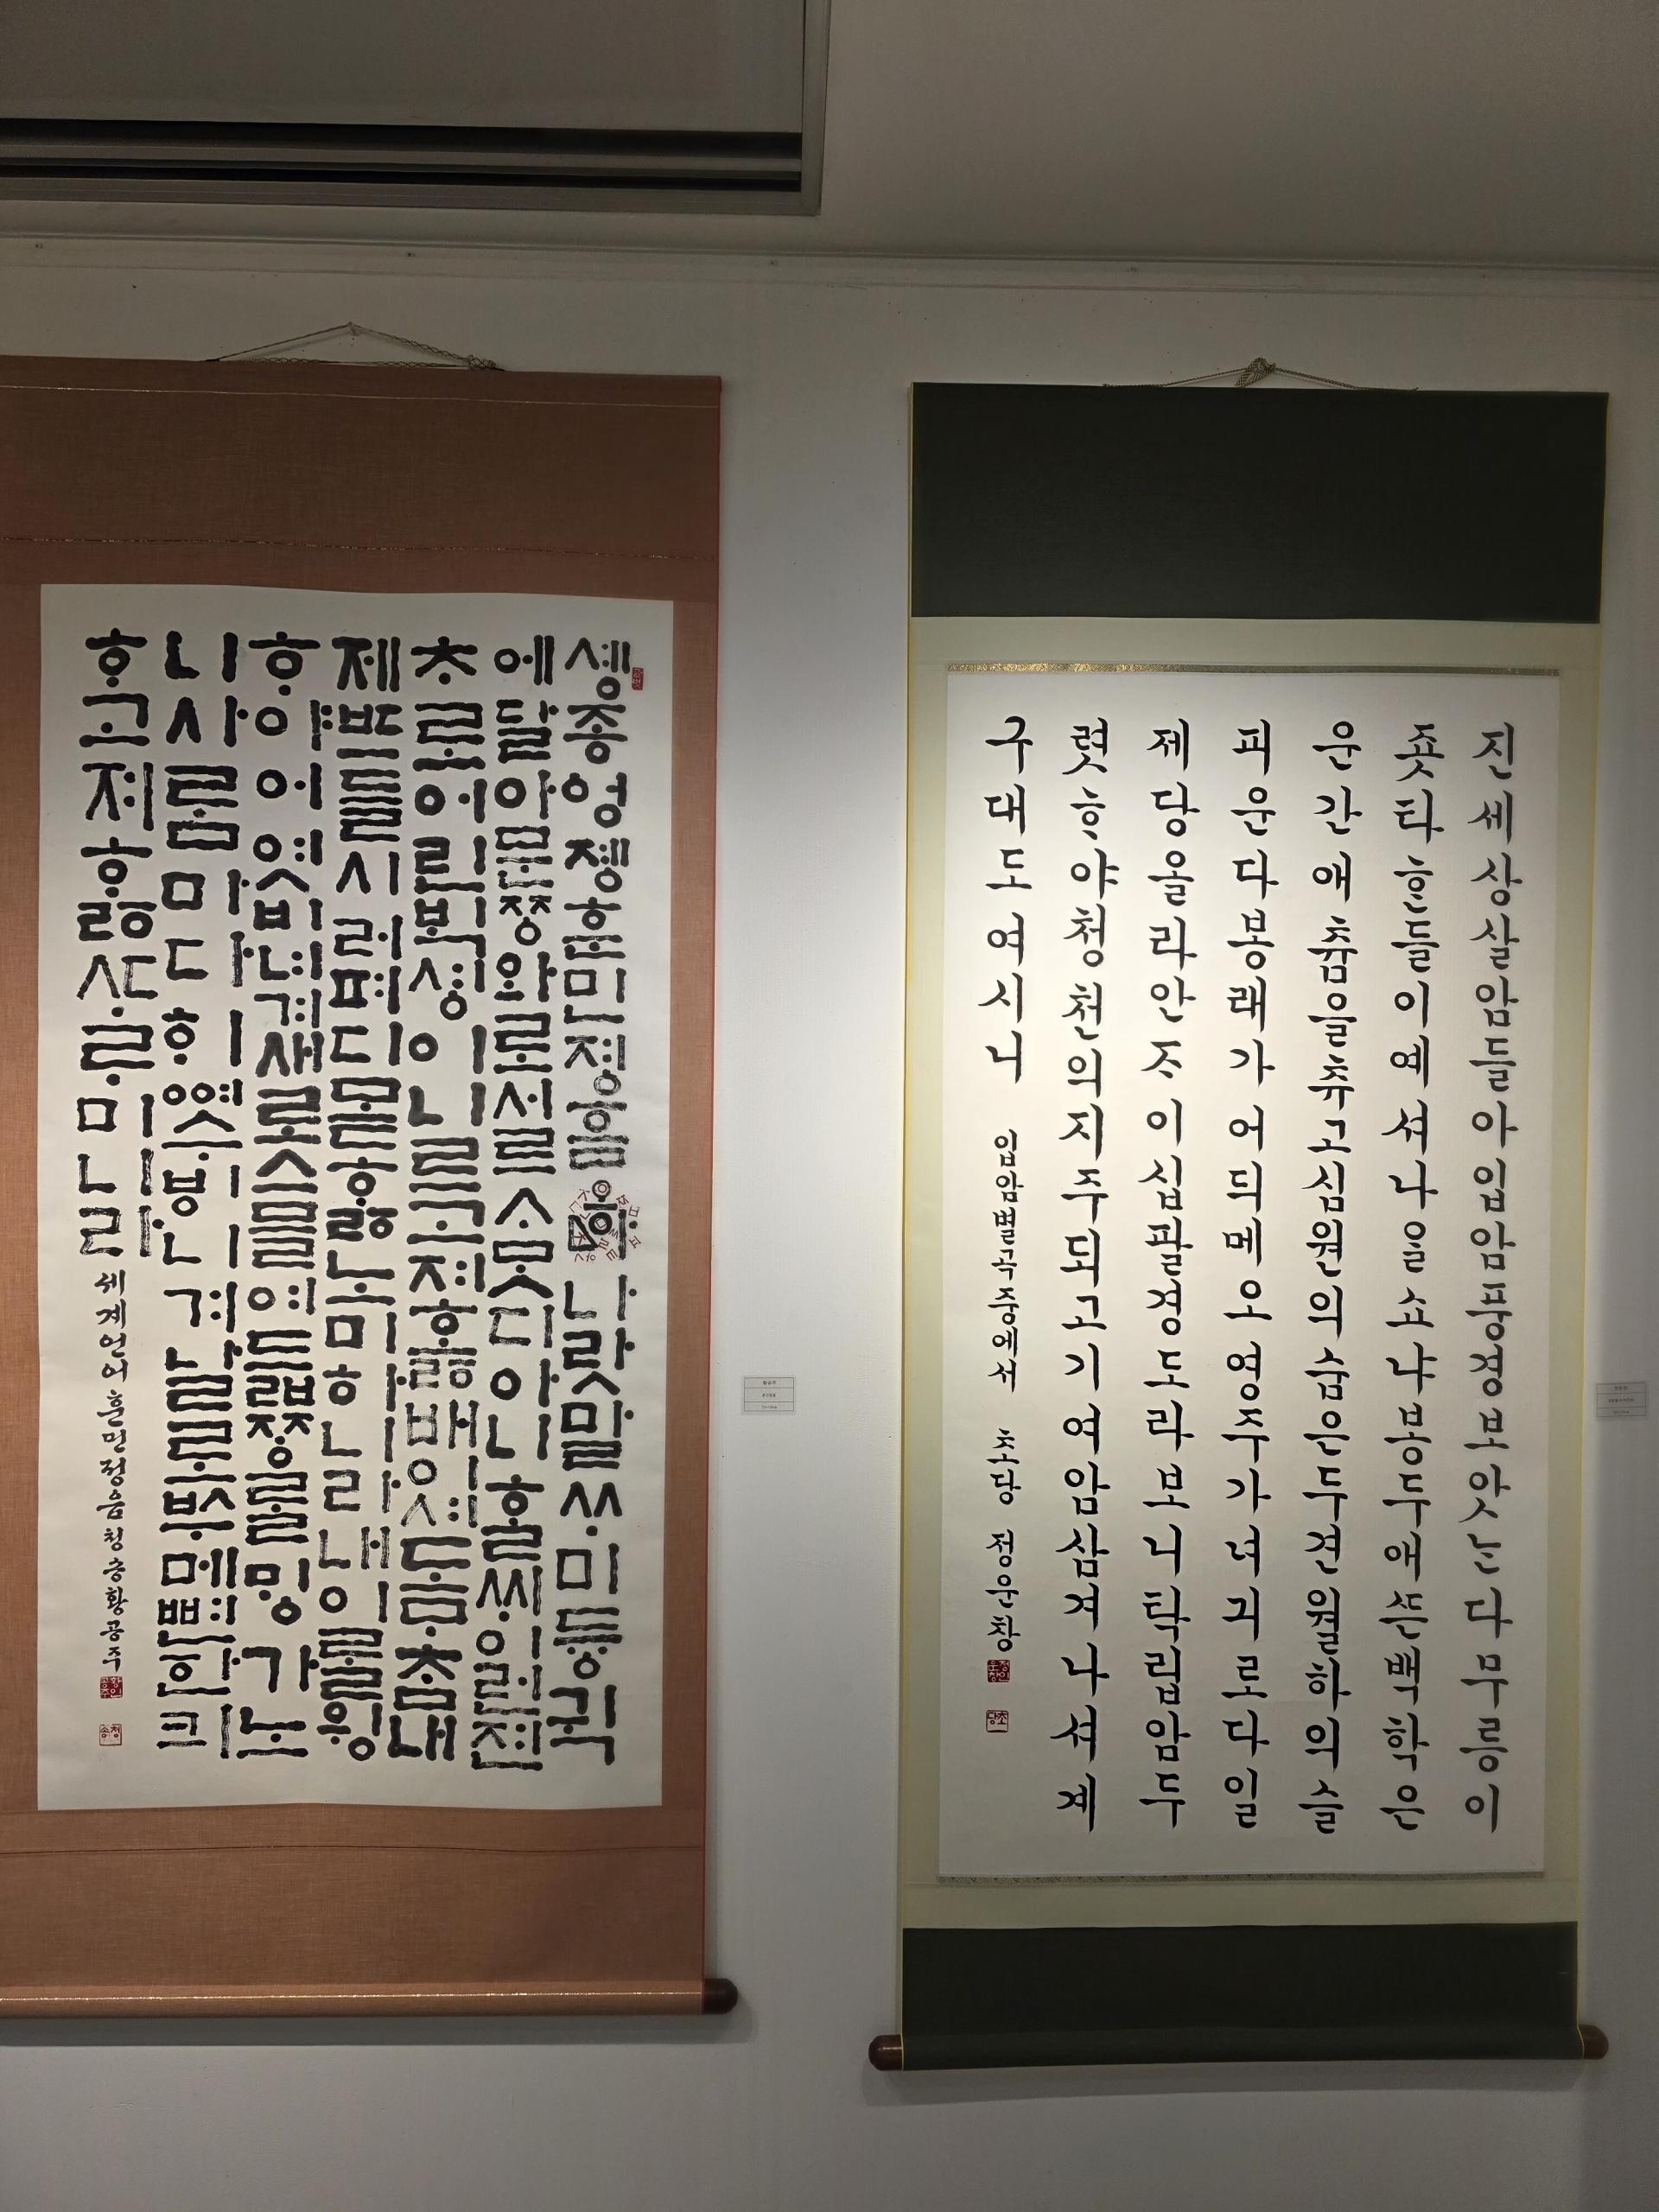 솅종엉졩훈민졍흠 나랏말ᄊᆞ미듕귁
에달아문ᄍᆞᆼ와로서르ᄉᆞᄆᆞᆺ디아니ᄒᆞᆯᄊᆡ이런젼
ᄎᆞ로어린ᄇᆡᆨ셩이니르고져호ᇙ배이셔도ᄆᆞᄎᆞᆷ내
제ᄠᅳ들시러펴디몯ᄒᆞᇙ노미하니라내이ᄅᆞᆯ윙
ᄒᆞ야어엿비너겨새로스믈여듧ᄍᆞᆼᄅᆞᆯ밍가노
니사ᄅᆞᆷ마다ᄒᆡᅇᅧ수ᄫᅵ니겨날로ᄡᅮ메뼌한킈
ᄒᆞ고져ᄒᆞᇙᄯᆞᄅᆞ미니라
세계언어훈민정음 청송황공주
진세상살암들아입암풍경보앗ᄂᆞᆫ다무릉이
죳타ᄒᆞᆫ들이예셔나을쇼냐봉두애슨백학은
운간애츔을츄고심원의숨은두견월하의슬
피운다봉래가어듸메오영주가녀긔로다일
제당올라안ᄌᆞ이십팔경도라보니탁립암두
렷ᄒᆞ야청천의지주되고기여암삼겨나셔계
구대도여시니 입암별곡중에서 초당 정운창